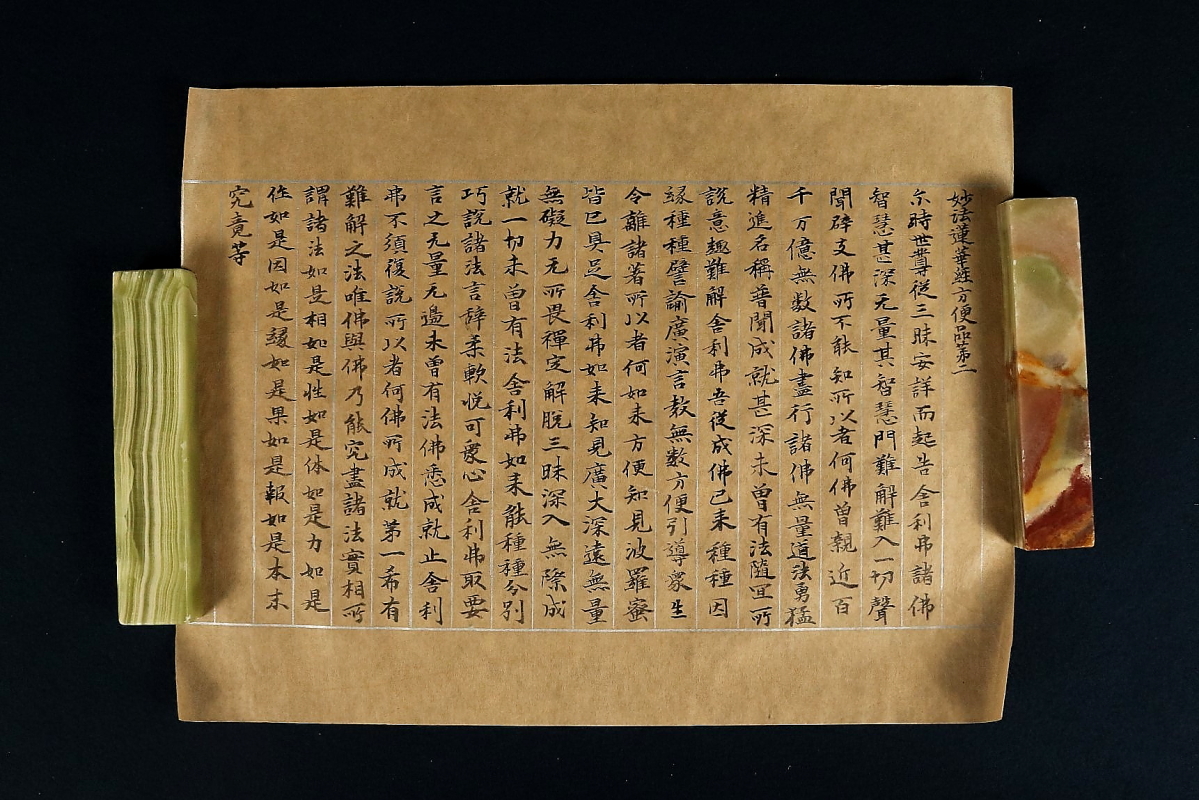 妙法蓮華経方便品第二
尓時世尊従三昧安詳而起告舎利弗諸佛
智慧甚深无量其智慧門難解難入一切聲
聞辟支佛所不能知所以者何佛曽親近百
千万億無数諸佛盡行諸佛無量道法勇猛
精進名稱普聞成就甚深未曽有法隨冝所
説意趣難解舎利弗吾従成佛已来種種因
縁種種譬諭廣演言教無数方便引導衆生
令離諸著所以者何如来方便知見波羅蜜
皆已具足舎利弗如来知見廣大深遠無量
無礙力无所畏禪定解脱三昧深入無際成
就一切未曽有法舎利弗如来能種種分別
巧説諸法言辞柔軟悦可衆心舎利弗取要
言之无量无邊未曽有法佛悉成就止舎利
弗不須復説所以者何佛所成就第一希有
難解之法唯佛與佛乃能究盡諸法實相所
謂諸法如是相如是性如是体如是力如是
作如是因如是縁如是果如是報如是本末
究竟等